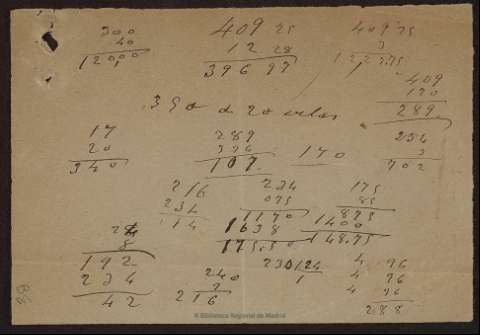 300
40
120,00
409 25
12 28
396 97
409 25
3
1227.75
409
120
289
390 de 20 velas
17
20
340
289
396
107
170
234
3
702
216
234
14
234
075
1170
1638
175.50
175
85
875
1400
148.75
24
8
192
234
42
240
2
216
230 124
1
4 96
4 96
4 96
288
© Biblioteca Regional de Madrid